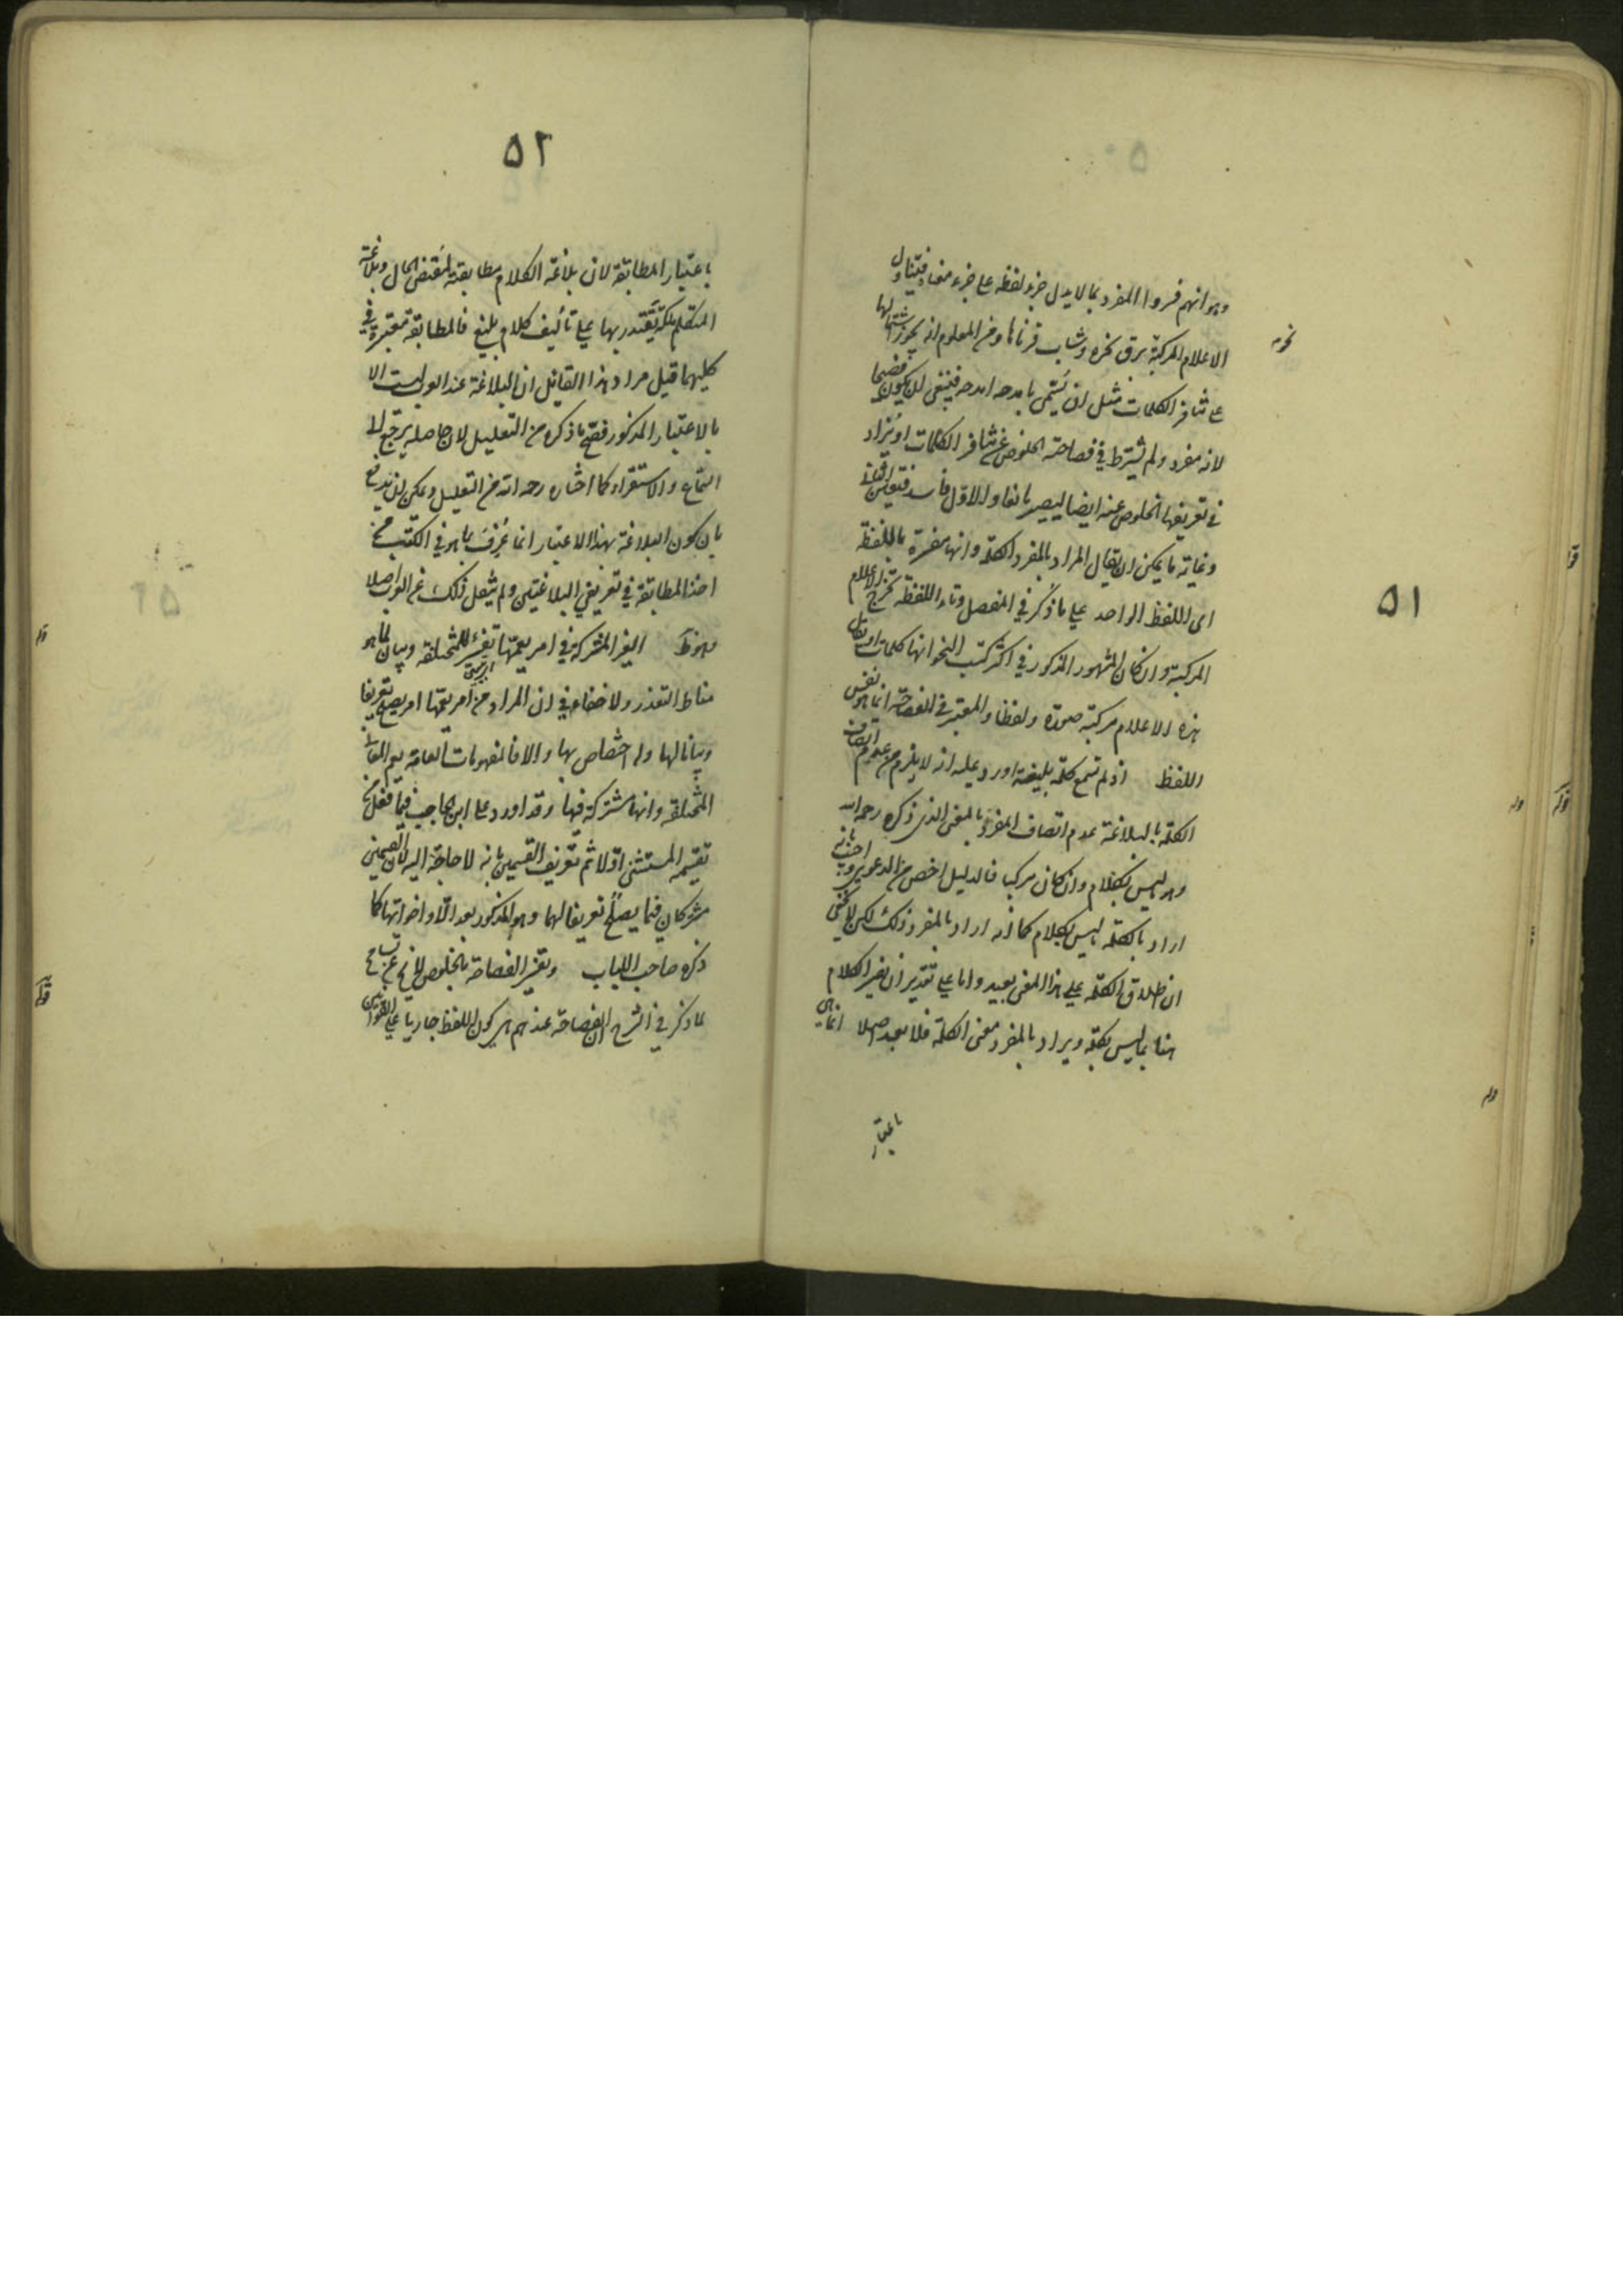 ٥١
وهو انهم فسروا المفرد بما لا يدل جزء لفظه على جزء معناه فيتناول
نحو
الاعلام المركبة برق نحره وشاب قرناها ومن المعلوم انه يجوز اشتمالها
على تنافر الكلمات مثل ان يسمى بامدحه امدحه فينبغي ان يكون فصيحا
لانه مفرد ولم يشترط في فصاحته الخلوص عن تنافر الكلمات او يزاد
في تعريفها الخلوص عنه ايضا ليصير مانعا والاول فاسد فتعين الثاني
وغاية ما يمكن ان يقال المراد بالمفرد الكلمة وانها مفسرة باللفظة
اى اللفظ الواحد على ما ذكر في المفصل وتاء اللفظة تخرج الاعلام
المركبة وان كان المشهور المذكور في اكثر كتب النحو انها كلمات او يقال
هذه الاعلام مركبة صورة ولفظا والمعتبر في الفصاحة انما هو نفس
اللفظ اذ لم تسمع كلمة بليغة اورد عليه انه لا يلزم من عدم اتصاف
الكلمة بالبلاغة عدم اتصاف المفرد بالمعنى الذى ذكره رحمه الله
وهو ما ليس بكلام وان كان مركبا فالدليل اخص من الدعوى واجيب بانه
اراد بالكلمة ما ليس بكلام كما انه اراد بالمفرد ذلك لكن لا يخفى
ان اطلاق الكلمة على هذا المعنى بعيد واما على تقدير ان يفسر الكلام
هنا بما ليس بكلمة ويراد بالمفرد معنى الكلمة فلا بعد اصلا انما هي
باعتبار
٥٢
باعتبار المطابقة لان بلاغة الكلام مطابقته لمقتضى الحال وبلاغة
المتكلم ملكة يقتدر بها على تأليف كلام بليغ فالمطابقة معتبرة في
كليهما قيل مراد هذا القائل ان البلاغة عند العرب ليست الا
بالاعتبار المذكور فصح ما ذكره من التعليل لان حاصله يرجع الى
السماع والاستقراء كما اختاره رحمه الله من التعليل ويمكن ان يدفع
بان كون البلاغة بهذا الاعتبار انما عرف بما هو في الكتب من
اخذ المطابقة في تعريفي البلاغتين ولم ينقل ذلك عن العرب اصلا
الغير المشتركة في امر يعمها تفسير للمختلفة وبيان لما هو
مناط التعذر ولا خفاء في ان المراد من امر يعمها امر يصلح تعريفا
وبيانا لها وله اختصاص بها والا فالمفهومات العامة يعم المعانى
المختلفة وانها مشتركة فيها وقد اورد على ابن الحاجب فيما فعل من
تقسيمه المستثنى اولا ثم تعريف القسمين بانه لا حاجة اليه لان القسمين
مشتركان فيما يصلح تعريفا لهما وهو المذكور بعد الا واخواتها كما
ذكره صاحب اللباب وتفسير الفصاحة بالخلوص لا يخ عن تسامح
لما ذكر في الشرح ان الفصاحة عندهم هي كون اللفظ جاريا على القوانين